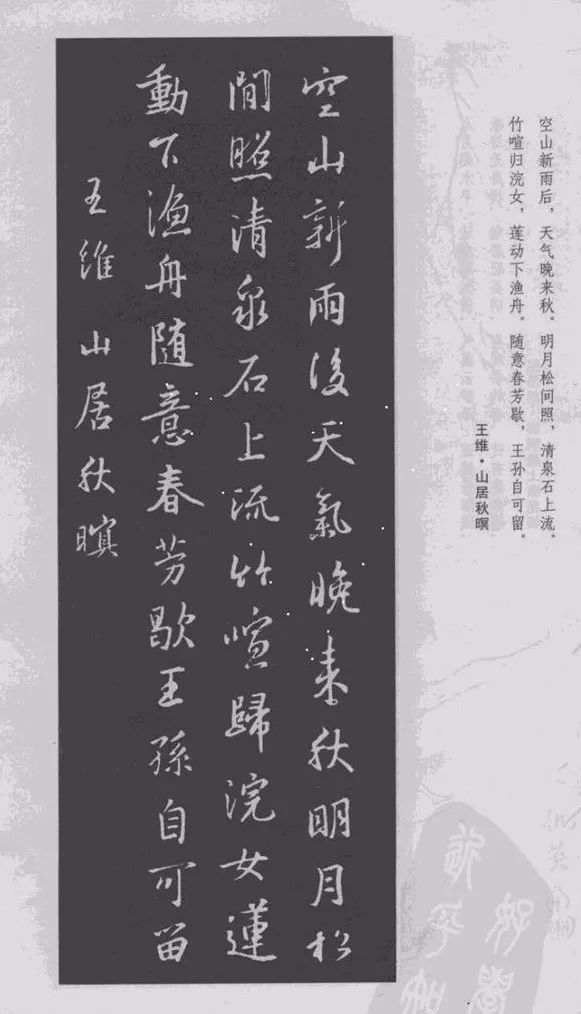 空山新雨后，天气晚来秋。明月松间照，清泉石上流。
竹喧归浣女，莲动下渔舟。随意春芳歇，王孙自可留。
王维·山居秋暝
空山新雨後天氣晚来秋明月松
間照清泉石上流竹喧歸浣女蓮
動下漁舟随意春芳歇王孫自可留
王維 山居秋暝